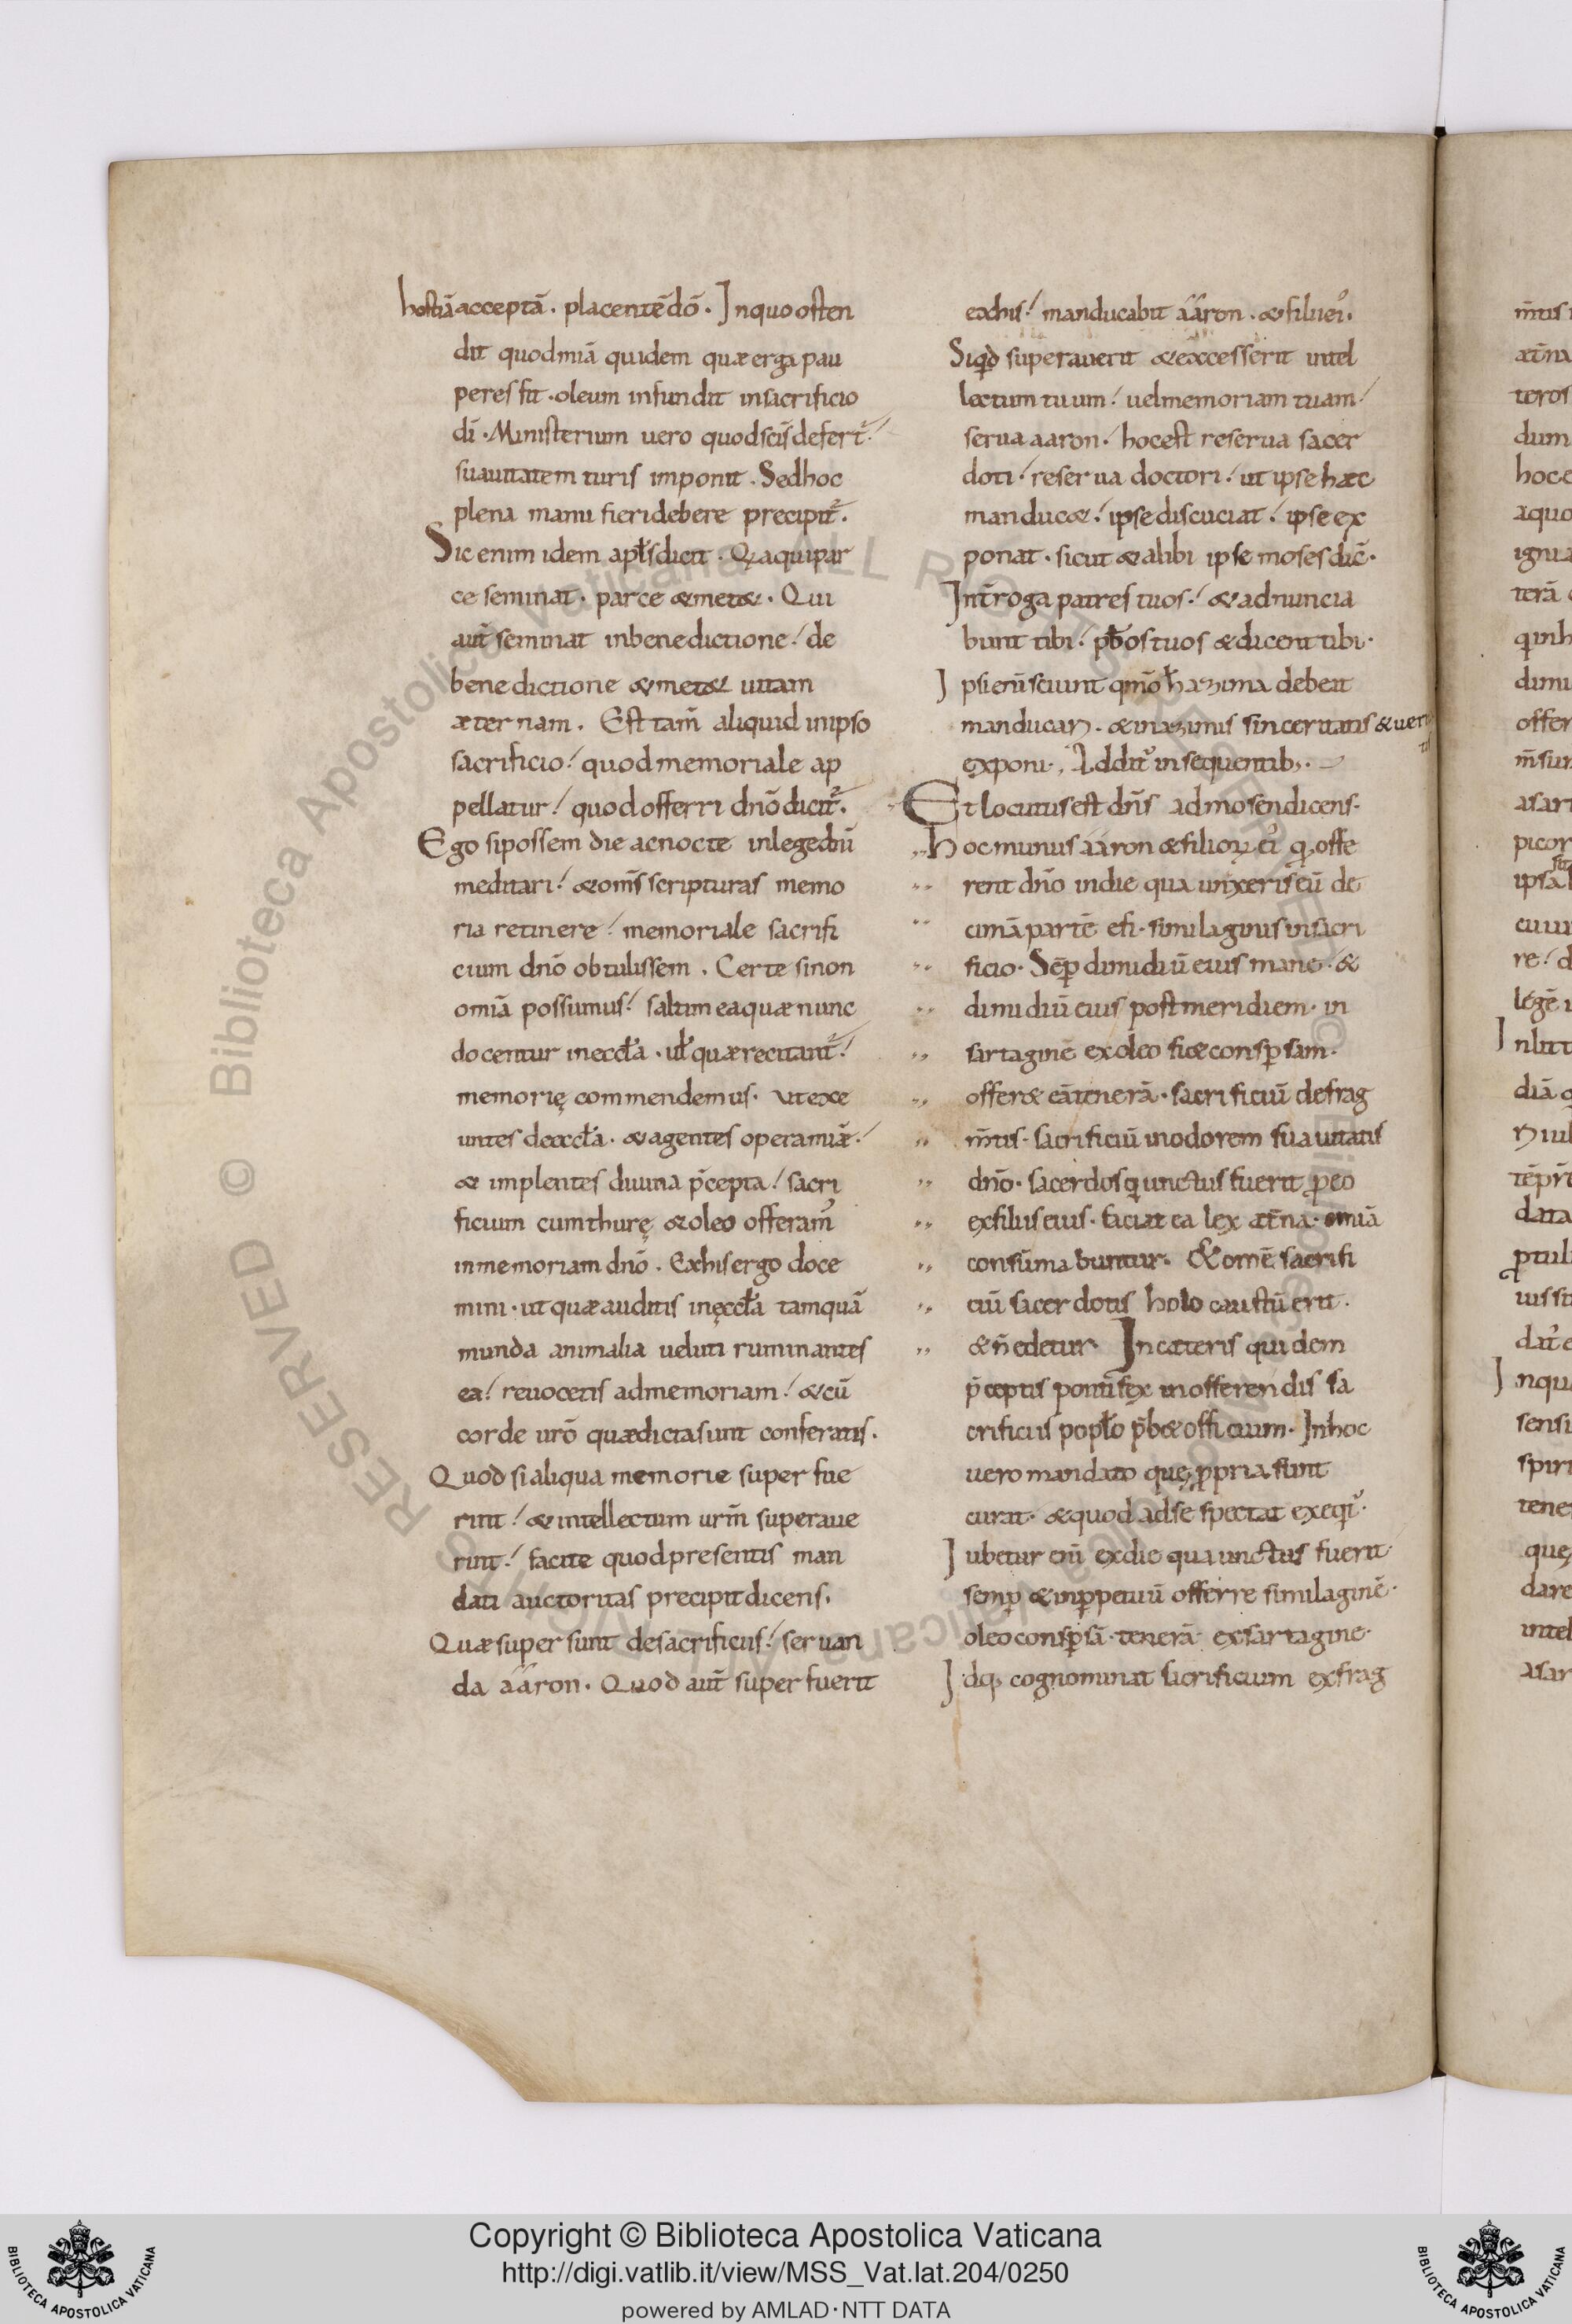 hostiā acceptā. placentē dō. In quo osten
dit quod miā quidem quæ erga pau
peres fit. oleum infundit in sacrificio
dī. Ministerium uero quod scīs defert̄
suauitatem turis imponit. Sed hoc
plena manu fieri debere precipit̄.
Sic enim idem apłs dicit. Quia qui par
ce seminat. parce & met&. Qui
aut̄ seminat in benedictione. de
benedictione & met& uitam
æternam. Est tam̄ aliquid in ipso
sacrificio. quod memoriale ap
pellatur. quod offerri dnō dicit̄.
Ego si possem die ac nocte in lege dnī
meditari. & omīs scripturas memo
ria retinere. memoriale sacrifi
cium dnō obtulissem. Certe si non
omiā possumus. saltim ea quæ nunc
docentur in eccłа. uł quæ recitant̄.
memorię commendemus. ut exe
untes de eccła. & agentes opera miǣ.
& implentes diuina p̄cepta. sacri
ficium cum thurę & oleo offeram᾿
in memoriam dnō. Ex his ergo doce
mini. ut quæ auditis in ęccła tamquā
munda animalia ueluti ruminantes
ea. reuocetis ad memoriam. & cū
corde urō quæ dicta sunt conferatis.
Quod si aliqua memorie super fue
rint. & intellectum urm̄ superaue
rint. facite quod presentis man
dati auctoritas precipit dicens.
Quæ super sunt de sacrificiis. seruan
da ááron. Quod aut̄ super fuerit
ex his. manducabit ááron. & filii ei᾿.
Si qđ superauerit & excesserit intel
lectum tuum. uel memoriam tuam.
serua aaron. hoc est reserua sacer
doti. reserua doctori. ut ipse hæc
manduc&. ipse discuciat. ipse ex
ponat. sicut & alibi ipse moses dic̄.
Int̄roga patres tuos. & adnuncia
bunt tibi. p̄bos tuos & dicent tibi.
Ipsi enī sciunt qm̄o hazima debeat
manducari. & in azimis sinceritatis & ueri
tis
exponi. Addit᾿ in sequentib;.
Et locutus est dn̄s ad mosen dicens.
Hoc munus ááron & filioꝝ ei᾿ qđ offe
rent dnō in die qua unxeris eū de
cimā partē efi. similaginis in sacri
ficio. Sēp dimidiū eius mane. &
dimidiū eius post meridiem. in
sartagine ex oleo fi& conspsam.
offer& eā tenerā. sacrificiū de frag
m̄tis. sacrificiū in odorem suauitatis
dnō. sacerdos qui unctus fuerit p eo
ex filiis eius. faciat ea lex æt̄na. omiā
consūmabuntur. & omē sacrifi
ciū sacerdotis holocaustū erit.
& n̄ edetur. In cæteris quidem
p̄ceptis pontifex in offerendis sa
crificiis popło p̄b& officium. In hoc
uero mandato quę ppria sunt
curat. & quod ad se spectat exeqi᾿.
Iubetur enī ex die qua unctus fuerit
semp & in ppetuū offerre similaginē.
oleo conspsā. tenerā ex sartagine.
Idq; cognominat sacrificium ex frag
Copyright © Biblioteca Apostolica Vaticana
http://digi.vatlib.it/view/MSS_Vat.lat.204/0250
powered by AMLAD·NTT DATA
BIBLIOTECA APOSTOLICA VATICANA
BIBLIOTECA APOSTOLICA VATICANA